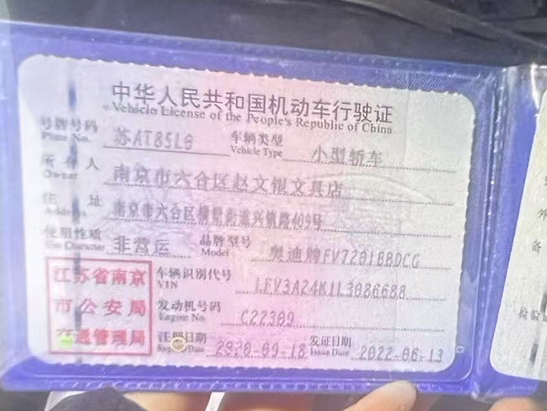 中华人民共和国机动车行驶证
Vehicle License of the People's Republic of China
号牌号码 Plate No. 苏AT85L9 车辆类型 Vehicle Type 小型轿车
所有人 Owner 南京市六合区赵文银文具店
住址 Address 南京市六合区横梁街道兴镇路409号
使用性质 Use Character 非营运 品牌型号 Model 奥迪牌FV7201BBDCG
江苏省南京
市公安局
交通管理局
车辆识别代号 VIN LFV3A24K1L3086688
发动机号码 Engine No. C22309
注册日期 Register Date 2020-09-18 发证日期 Issue Date 2022-06-13